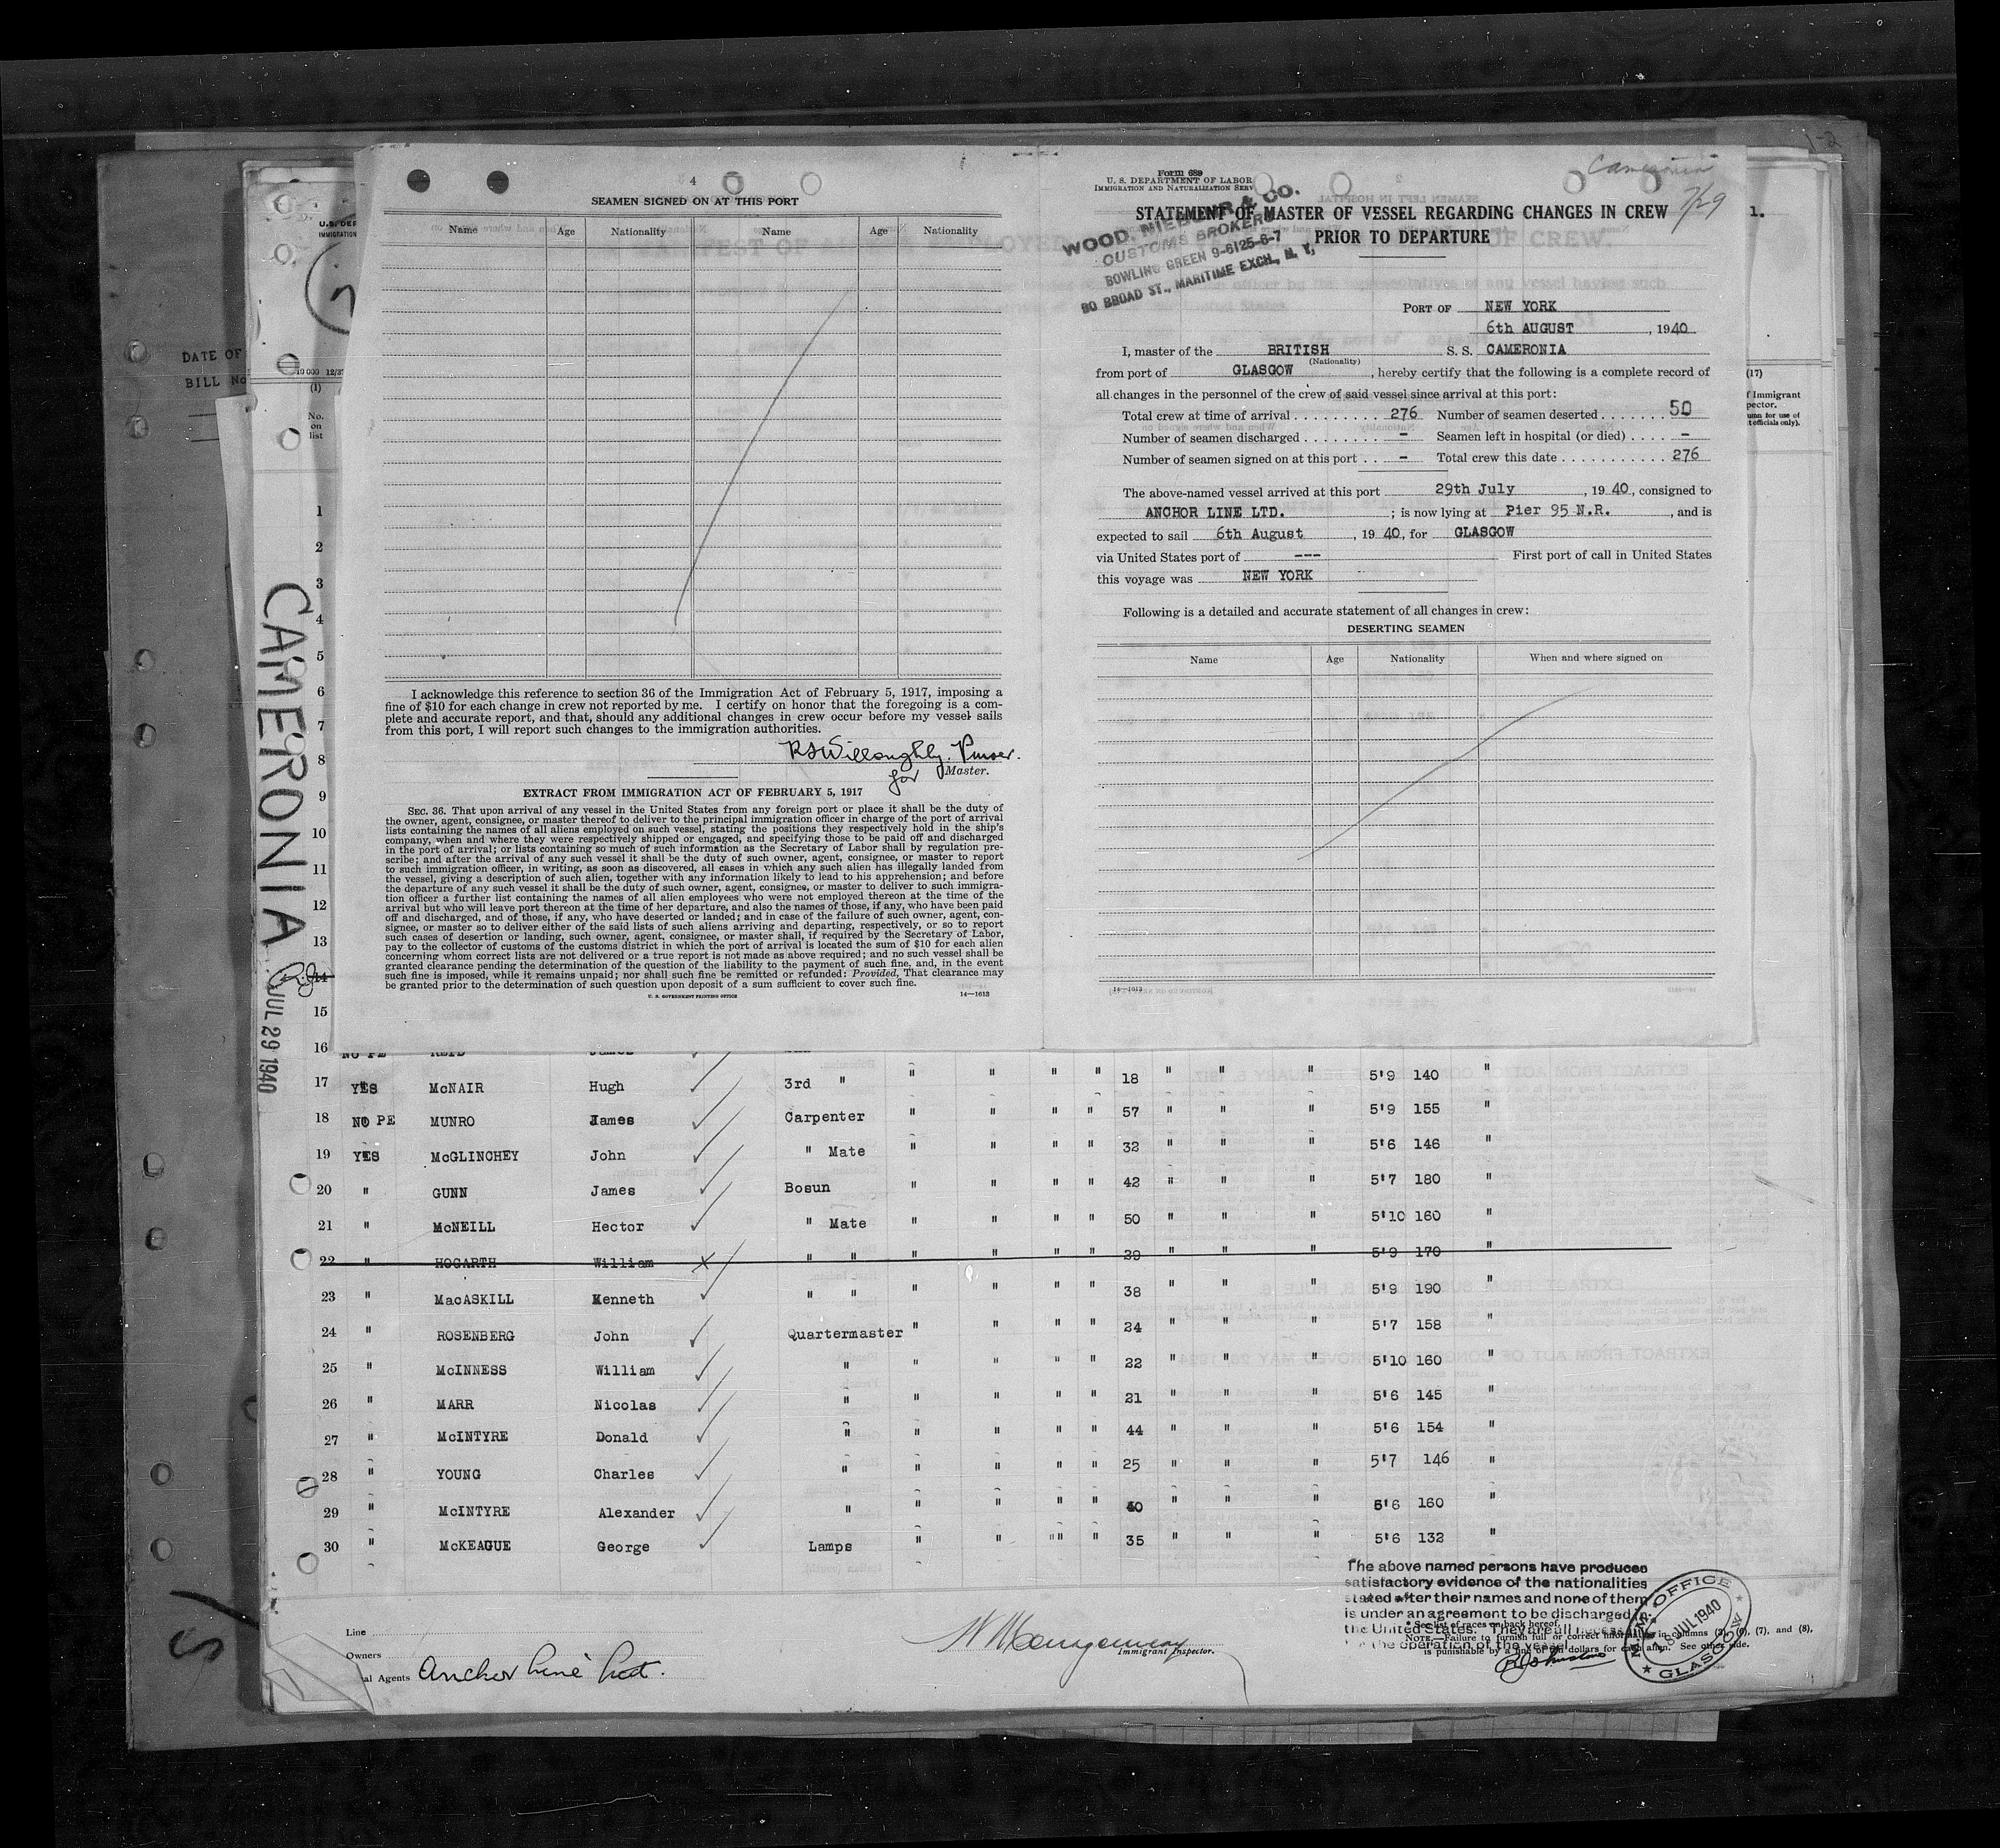 4
SEAMEN SIGNED ON AT THIS PORT
Name Age Nationality Name Age Nationality
I acknowledge this reference to section 36 of the Immigration Act of February 5, 1917, imposing a
fine of $10 for each change in crew not reported by me. I certify on honor that the foregoing is a com-
plete and accurate report, and that, should any additional changes in crew occur before my vessel sails
from this port, I will report such changes to the immigration authorities.
RSWilloughby. Purser.
for Master.
EXTRACT FROM IMMIGRATION ACT OF FEBRUARY 5, 1917
SEC. 36. That upon arrival of any vessel in the United States from any foreign port or place it shall be the duty of
the owner, agent, consignee, or master thereof to deliver to the principal immigration officer in charge of the port of arrival
lists containing the names of all aliens employed on such vessel, stating the positions they respectively hold in the ship's
company, when and where they were respectively shipped or engaged, and specifying those to be paid off and discharged
in the port of arrival; or lists containing so much of such information as the Secretary of Labor shall by regulation pre-
scribe; and after the arrival of any such vessel it shall be the duty of such owner, agent, consignee, or master to report
to such immigration officer, in writing, as soon as discovered, all cases in which any such alien has illegally landed from
the vessel, giving a description of such alien, together with any information likely to lead to his apprehension; and before
the departure of any such vessel it shall be the duty of such owner, agent, consignee, or master to deliver to such immigra-
tion officer a further list containing the names of all alien employees who were not employed thereon at the time of the
arrival but who will leave port thereon at the time of her departure, and also the names of those, if any, who have been paid
off and discharged, and of those, if any, who have deserted or landed; and in case of the failure of such owner, agent, con-
signee, or master so to deliver either of the said lists of such aliens arriving and departing, respectively, or so to report
such cases of desertion or landing, such owner, agent, consignee, or master shall, if required by the Secretary of Labor,
pay to the collector of customs of the customs district in which the port of arrival is located the sum of $10 for each alien
concerning whom correct lists are not delivered or a true report is not made as above required; and no such vessel shall be
granted clearance pending the determination of the question of the liability to the payment of such fine, and, in the event
such fine is imposed, while it remains unpaid; nor shall such fine be remitted or refunded: Provided, That clearance may
be granted prior to the determination of such question upon deposit of a sum sufficient to cover such fine.
U. S. GOVERNMENT PRINTING OFFICE 14—1613
Cameronia
7/29
Form 689
U. S. DEPARTMENT OF LABOR
IMMIGRATION AND NATURALIZATION SERV
STATEMENT OF MASTER OF VESSEL REGARDING CHANGES IN CREW
PRIOR TO DEPARTURE
WOOD, NIEBUHR & CO.
CUSTOMS BROKERS
BOWLING GREEN 9-6125-6-7
80 BROAD ST., MARITIME EXCH., N. Y.
PORT OF NEW YORK
6th AUGUST , 1940
I, master of the BRITISH S. S. CAMERONIA
(Nationality)
from port of GLASGOW , hereby certify that the following is a complete record of
all changes in the personnel of the crew of said vessel since arrival at this port:
Total crew at time of arrival 276 Number of seamen deserted 50
Number of seamen discharged – Seamen left in hospital (or died) –
Number of seamen signed on at this port – Total crew this date 276
The above-named vessel arrived at this port 29th July , 19 40, consigned to
ANCHOR LINE LTD. ; is now lying at Pier 95 N.R. , and is
expected to sail 6th August , 19 40, for GLASGOW
via United States port of --- First port of call in United States
this voyage was NEW YORK
Following is a detailed and accurate statement of all changes in crew:
DESERTING SEAMEN
Name Age Nationality When and where signed on
14—1613
1-2
DATE OF
BILL No
U.S. DEP
IMMIGRATION
10 000 12/37
(1)
No.
on
list
1.
(17)
f Immigrant
pector.
umn for use of
t officials only).
CAMERONIA
JUL 29 1940
1
2
3
4
5
6
7
8
9
10
11
12
13
14
15
16 NO PE REID James
17 YES McNAIR Hugh 3rd " " " " " 18 " " " 5'9 140 "
18 NO PE MUNRO James Carpenter " " " " 57 " " " 5'9 155 "
19 YES McGLINCHEY John " Mate " " " " 32 " " " 5'6 146 "
20 " GUNN James Bosun " " " " 42 " " " 5'7 180 "
21 " McNEILL Hector " Mate " " " " 50 " " " 5'10 160 "
22 " HOGARTH William " " " " " " 39 " " " 5'9 170 "
23 " MacASKILL Kenneth " " " " " " 38 " " " 5'9 190 "
24 " ROSENBERG John Quartermaster " " " " 24 " " " 5'7 158 "
25 " McINNESS William " " " " " 22 " " " 5'10 160 "
26 " MARR Nicolas " " " " " 21 " " " 5'6 145 "
27 " McINTYRE Donald " " " " " 44 " " " 5'6 154 "
28 " YOUNG Charles " " " " " 25 " " " 5'7 146 "
29 " McINTYRE Alexander " " " " " 40 " " " 5'6 160 "
30 " McKEAGUE George Lamps " " "" " 35 " " " 5'6 132 "
The above named persons have produced
satisfactory evidence of the nationalities
stated after their names and none of them
is under an agreement to be discharged in
the United States. They are all necess
the operation of the vessel
* See list of races on back hereof.
NOTE.—Failure to furnish full or correct information in columns (3), (6), (7), and (8),
is punishable by a fine of ten dollars for each alien. See other side.
M.M. OFFICE
JUL 1940
GLASGOW
Line
Owners
al Agents Anchor Line Ltd.
Immigrant Inspector.